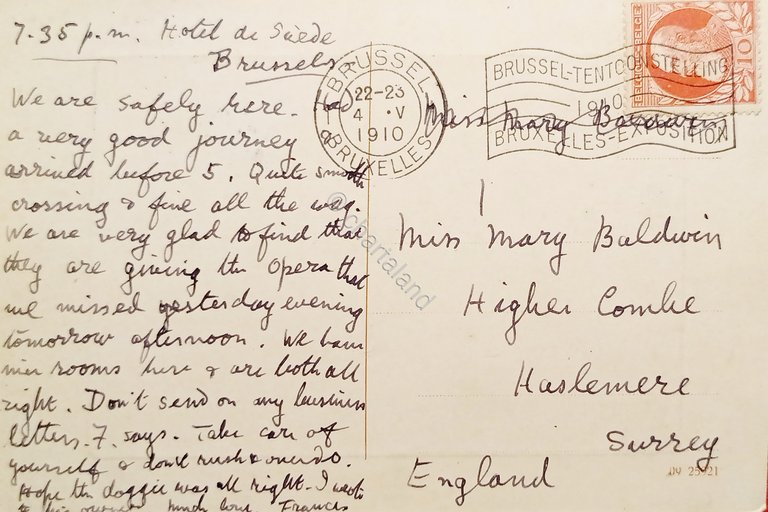 7.35 p.m. Hotel de Suède
Brussels
We are safely here. Had
a very good journey &
arrived before 5. Quite smooth
crossing & fine all the way.
We are very glad to find that
they are giving the Opera that
we missed yesterday evening
tomorrow afternoon. We have
nice rooms here & are both all
right. Don't send on any business
letters. F. says. Take care of
yourself & don't rush & overdo.
Hope the doggie was all right. I wrote
to his owner. Much love. Francis
BRUSSEL
22-23
4 V
1910
BRUXELLES
BRUSSEL-TENTOONSTELLING
1910
BRUXELLES-EXPOSITION
BELGIQUE-BELGIË
10
Miss Mary Baldwin
Miss Mary Baldwin
Higher Combe
Haslemere
Surrey
England
09 25921
@chartaland